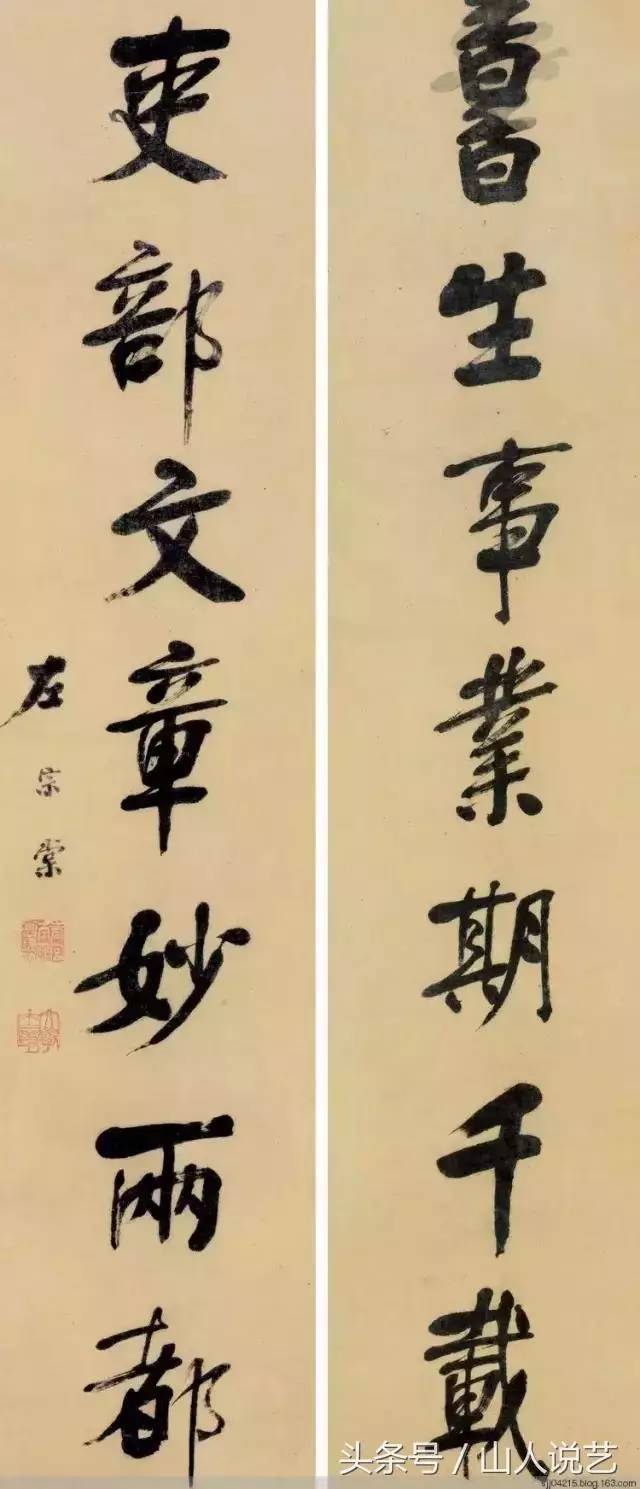 書生事業期千載
吏部文章妙兩都
左宗棠
头条号 / 山人说艺